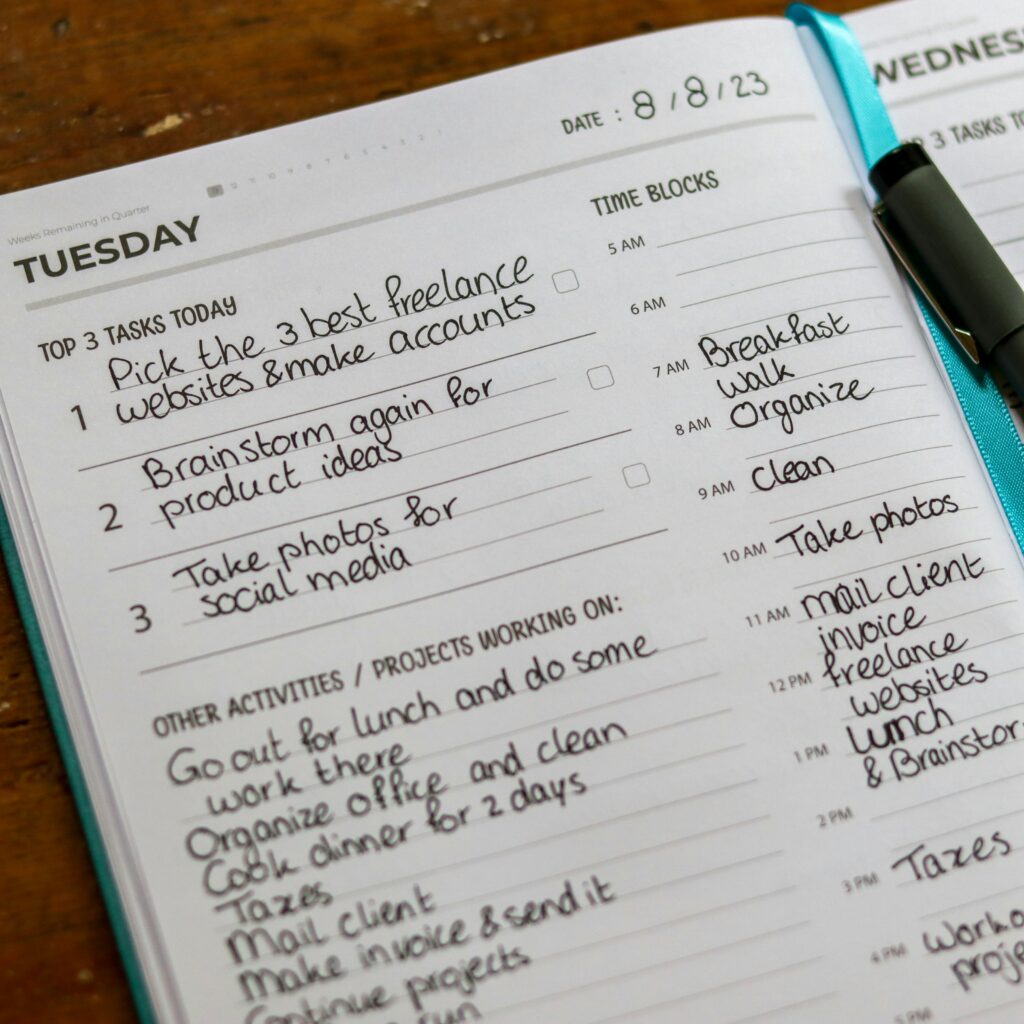 Weeks Remaining in Quarter
TUESDAY
DATE : 8 / 8 / 23
TOP 3 TASKS TODAY
1 Pick the 3 best freelance
websites & make accounts
2 Brainstorm again for
product ideas
3 Take photos for
social media
OTHER ACTIVITIES / PROJECTS WORKING ON:
Go out for lunch and do some
work there
Organize office and clean
Cook dinner for 2 days
Taxes
Mail client
Make invoice & send it
Continue projects
run
TIME BLOCKS
5 AM
6 AM
7 AM Breakfast
walk
8 AM Organize
9 AM Clean
10 AM Take photos
11 AM mail client
invoice
12 PM freelance
websites
1 PM lunch
& Brainstor
2 PM
3 PM Taxes
4 PM Worko
proje
5 PM
WEDNES
3 TASKS TO